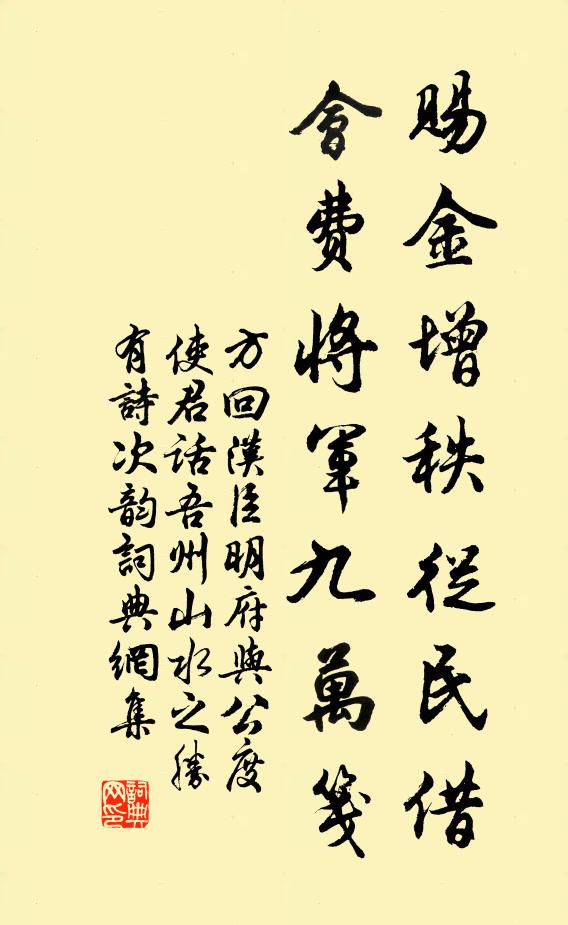 賜金增秩從民借
會費將軍九萬箋
方回漢臣明府與公度
使君話吾州山水之勝
有詩次韵詞典網集
詞典網印